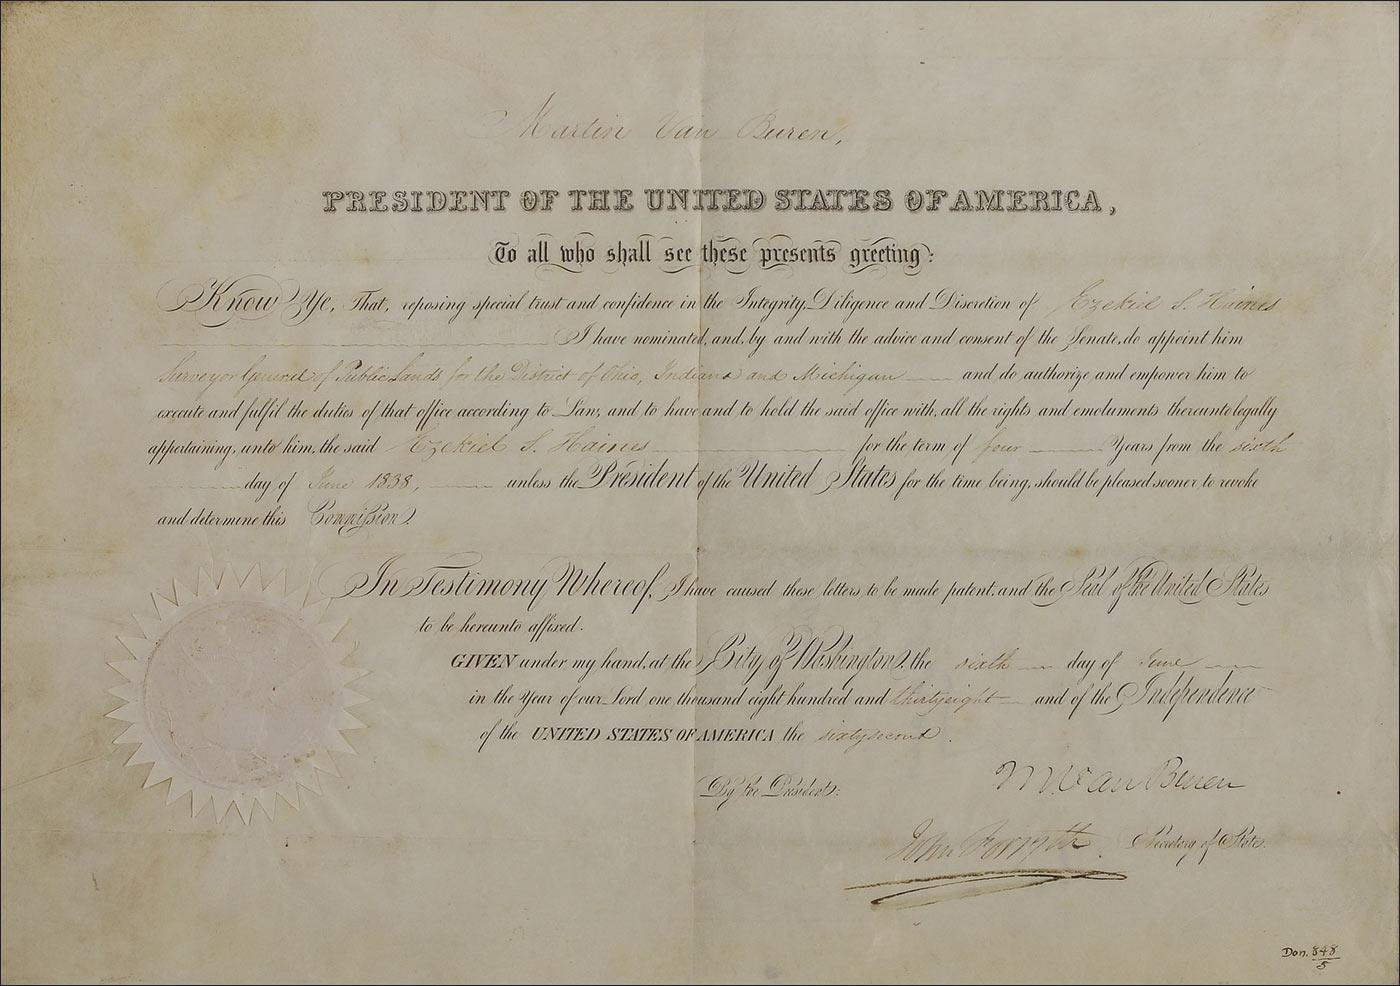 Martin Van Buren,
PRESIDENT OF THE UNITED STATES OF AMERICA,
To all who shall see these presents greeting:
Know Ye, That, reposing special trust and confidence in the Integrity, Diligence and Discretion of Ezekiel S. Haines
I have nominated, and, by and with the advice and consent of the Senate, do appoint him
Surveyor General of Public Lands for the District of Ohio, Indiana and Michigan and do authorize and empower him to
execute and fulfil the duties of that office according to Law; and to have and to hold the said office with, all the rights and emoluments thereunto legally
appertaining, unto him, the said Ezekiel S. Haines for the term of four Years from the sixth
day of June 1838, unless the President of the United States for the time being, should be pleased sooner to revoke
and determine this Commission.
In Testimony Whereof, I have caused these letters to be made patent, and the Seal of the United States
to be hereunto affixed.
GIVEN under my hand, at the City of Washington, the sixth day of June
in the Year of our Lord one thousand eight hundred and thirtyeight and of the Independence
of the UNITED STATES OF AMERICA the sixtysecond.
By the President:
M. Van Buren
John Forsyth Secretary of State.
Don. 848/5